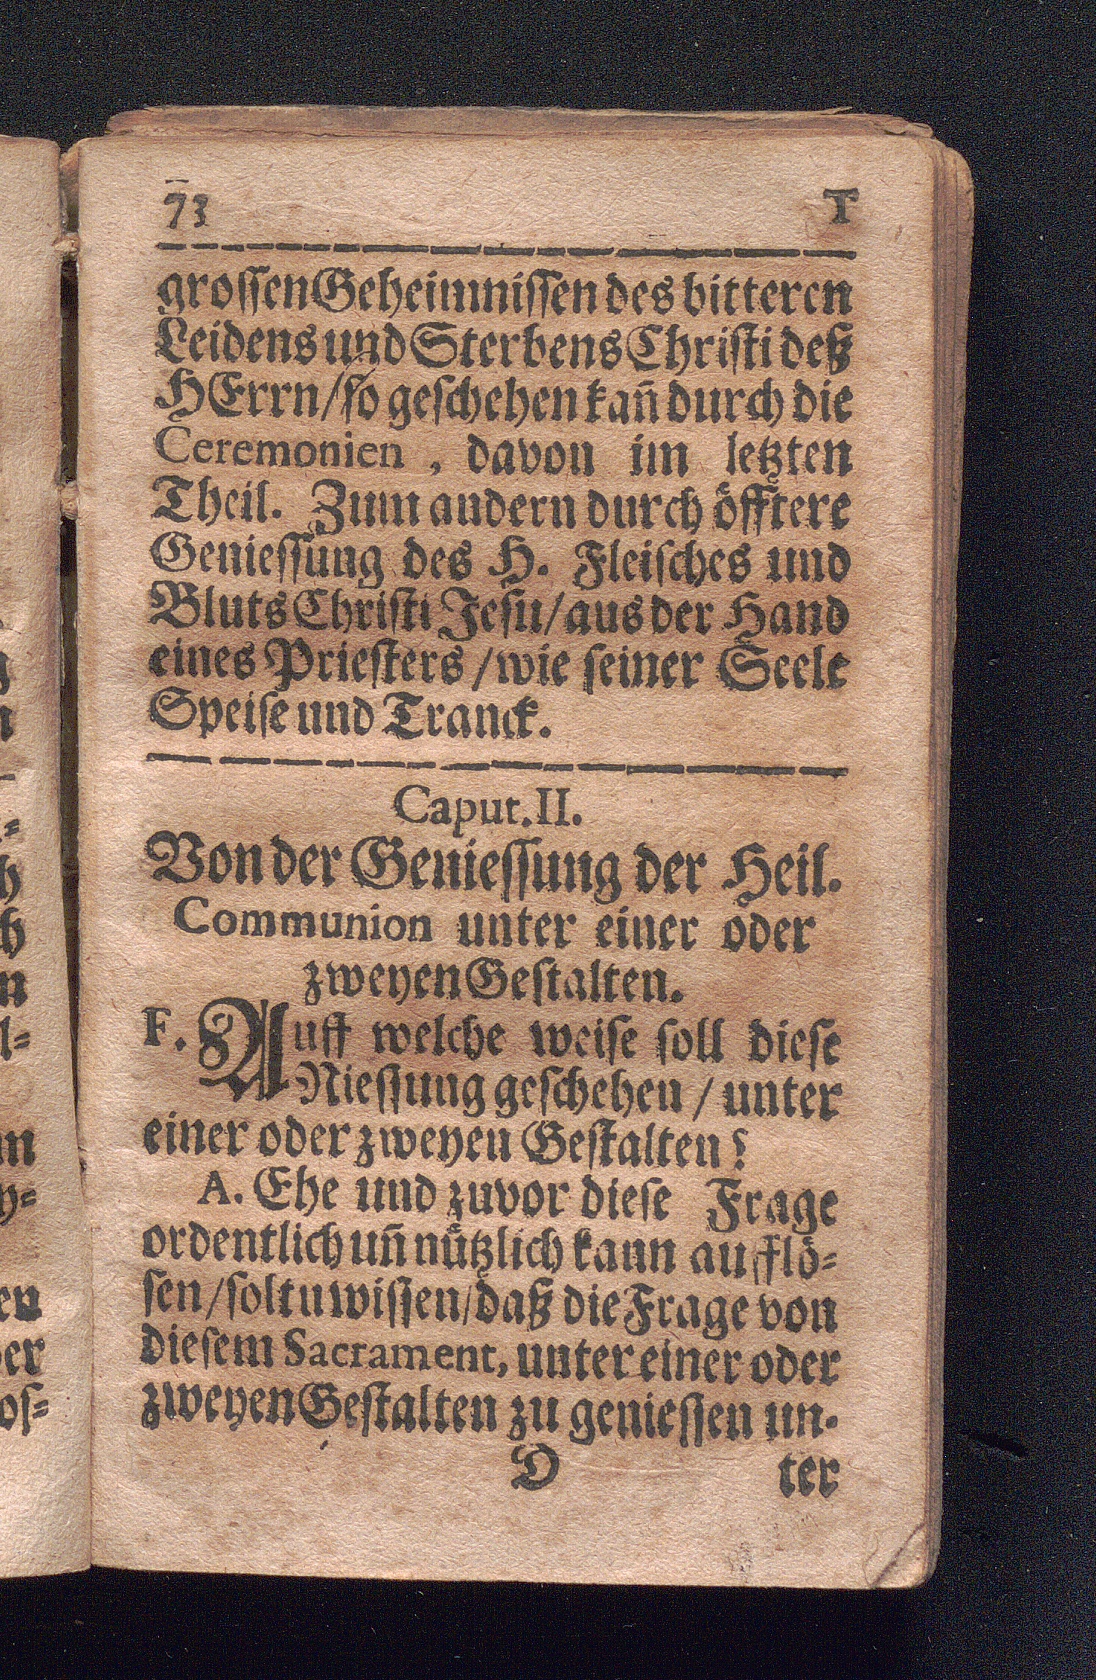 73 T
grossen Geheimnissen des bitteren
Leidens und Sterbens Christi deß
HErrn/ so geschehen kañ durch die
Ceremonien, davon im letzten
Theil. Zum andern durch öfftere
Geniessung des H. Fleisches und
Bluts Christi Jesu/ aus der Hand
eines Priesters/ wie seiner Seele
Speise und Tranck.
Caput. II.
Von der Geniessung der Heil.
Communion unter einer oder
zweyen Gestalten.
F. Auff welche weise soll diese
Niessung geschehen/ unter
einer oder zweyen Gestalten?
A. Ehe und zuvor diese Frage
ordentlich uñ nützlich kann aufflö-
sen/ soltu wissen/ daß die Frage von
diesem Sacrament, unter einer oder
zweyen Gestalten zu geniessen un-
D ter